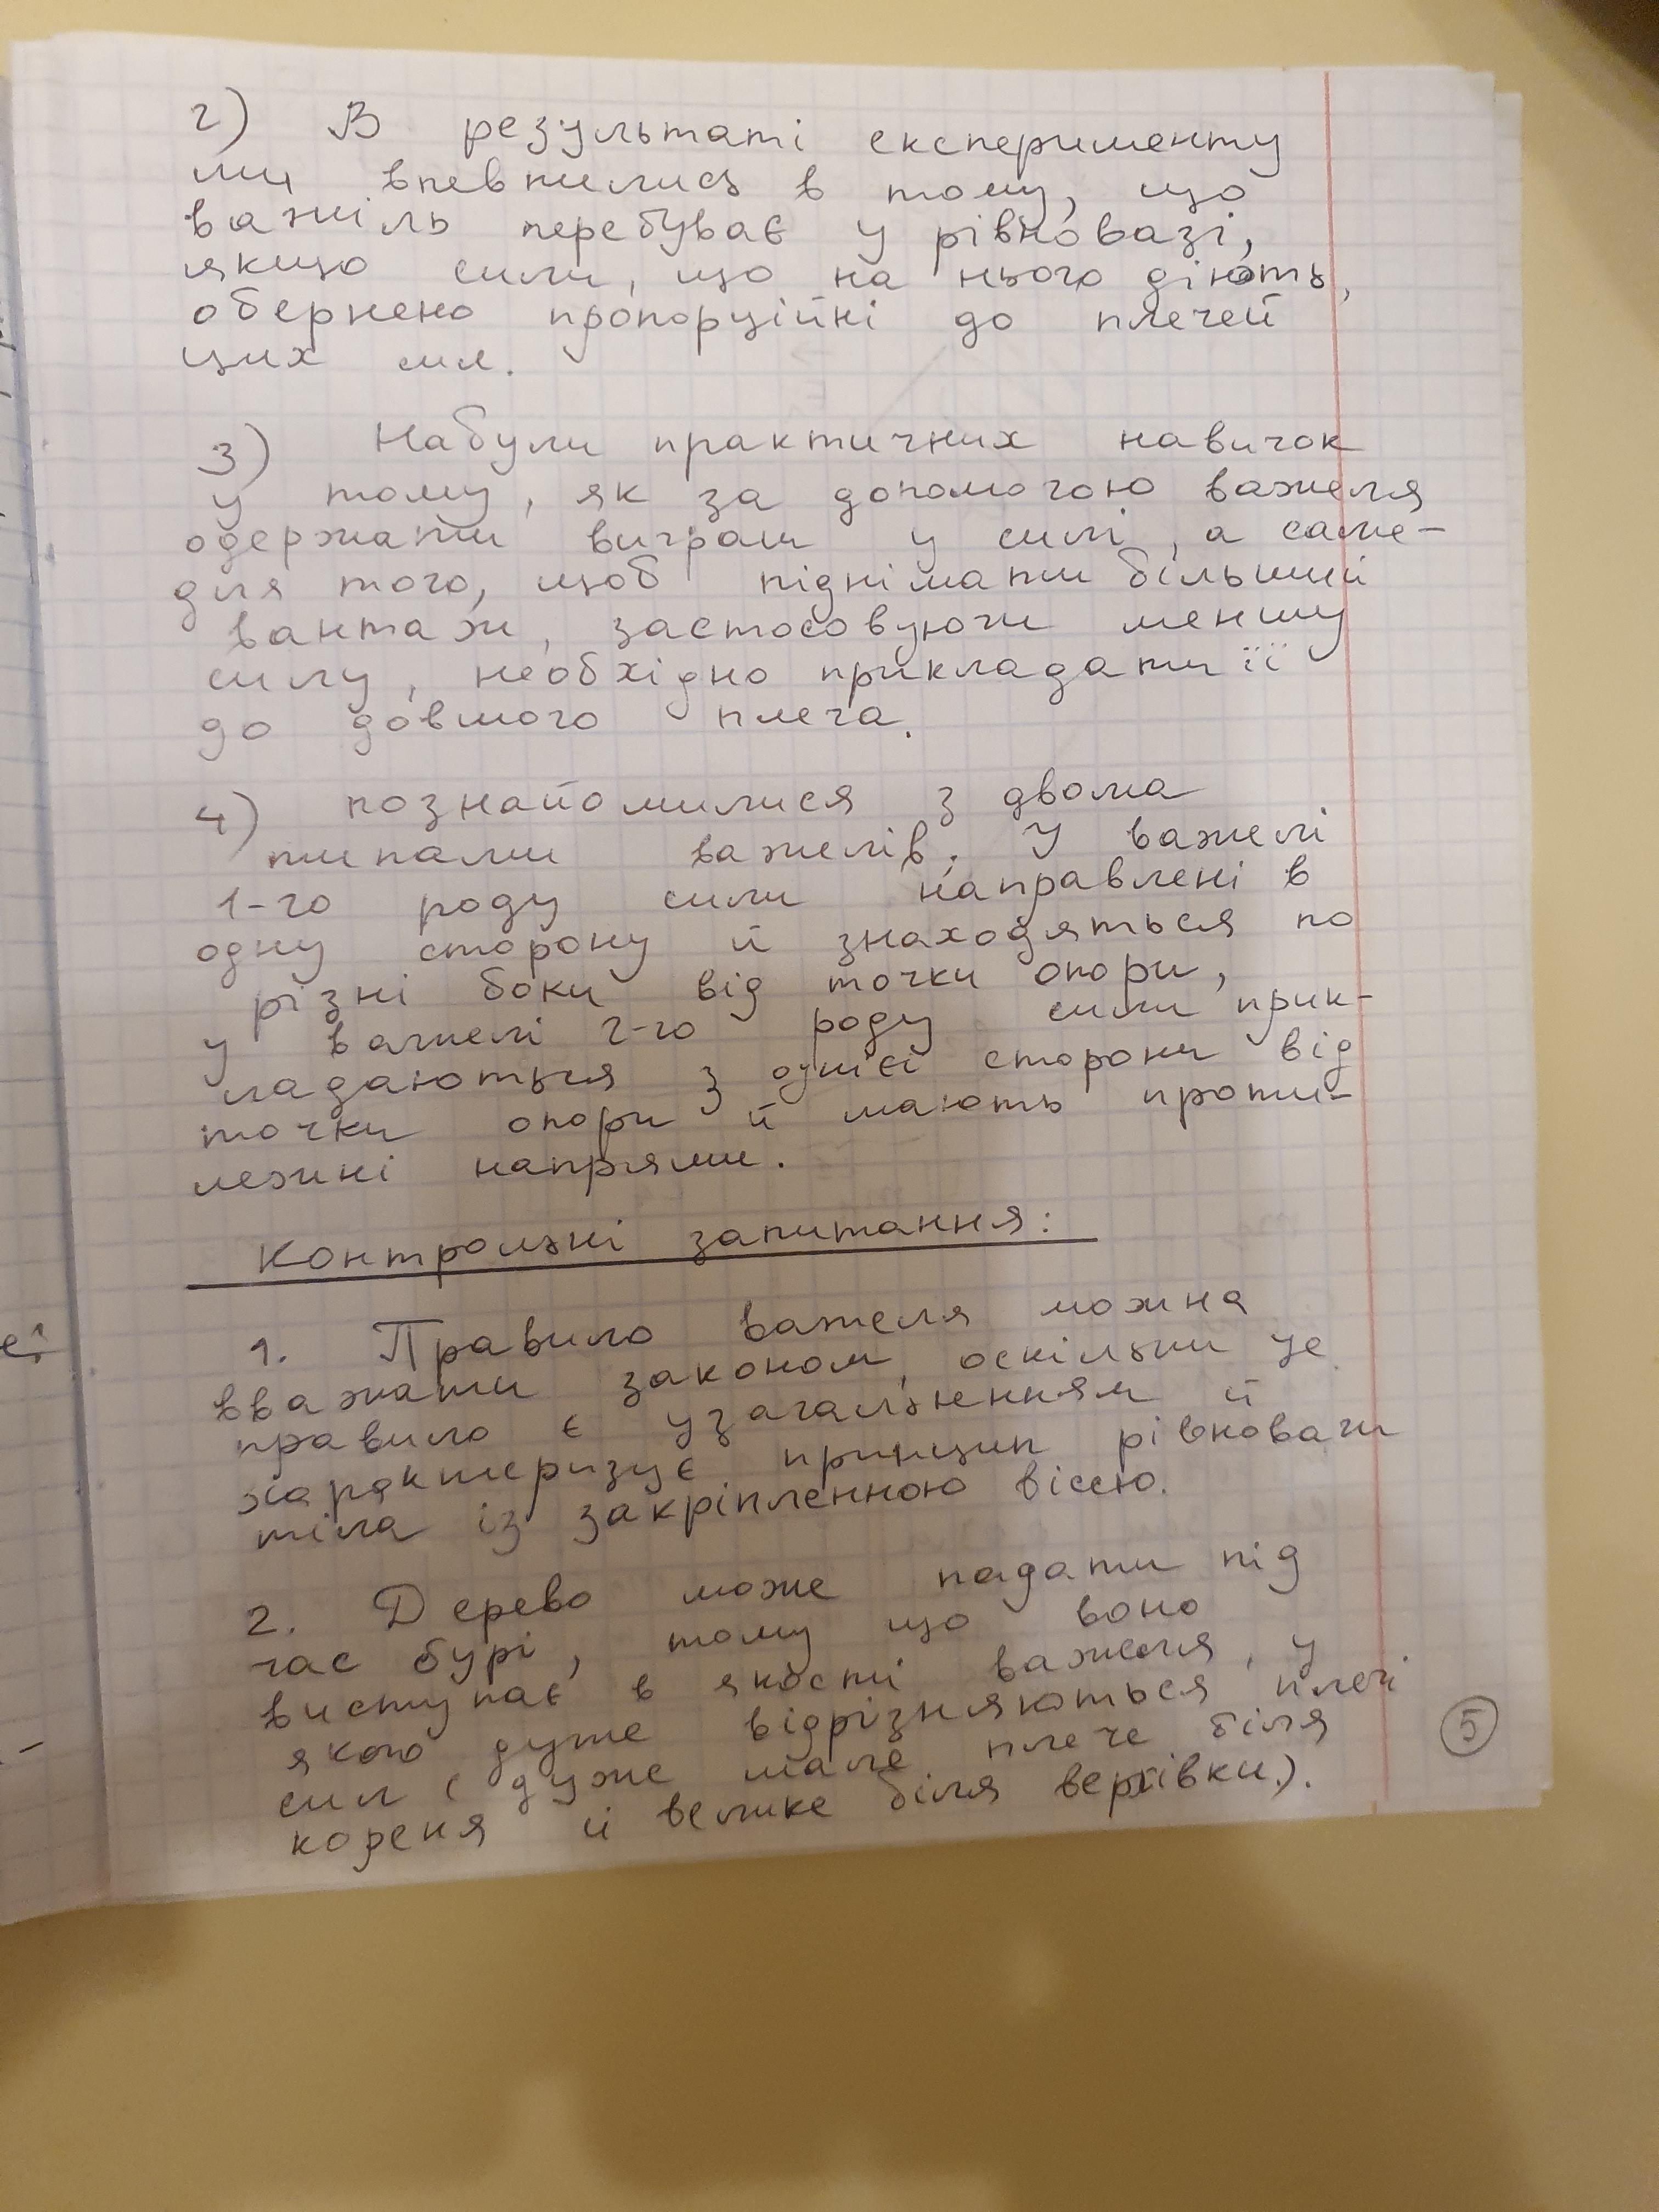 2) В результаті експерименту
ми впевнились в тому, що
важіль перебуває у рівновазі,
якщо сили, що на нього діють,
обернено пропорційні до плечей
цих сил.
3) Набули практичних навичок
у тому, як за допомогою важеля
одержати виграш у силі, а саме -
для того, щоб піднімати більший
вантаж, застосовуючи меншу
силу, необхідно прикладати її
до довшого плеча.
4) познайомилися з двома
типами важелів. У важелі
1-го роду сили направлені в
одну сторону й знаходяться по
різні боки від точки опори,
у важелі 2-го роду сили прик-
ладаються з однієї сторони від
точки опори й мають проти-
лежні напрями.
Контрольні запитання:
1. Правило важеля можна
вважати законом, оскільки це
правило є узагальненням й
характеризує принцип рівноваги
тіла із закріпленною віссю.
2. Дерево може падати під
час бурі, тому що воно
виступає в якості важеля, у
якого дуже відрізняються плечі
сил (дуже мале плече біля
кореня й велике біля верхівки).
5